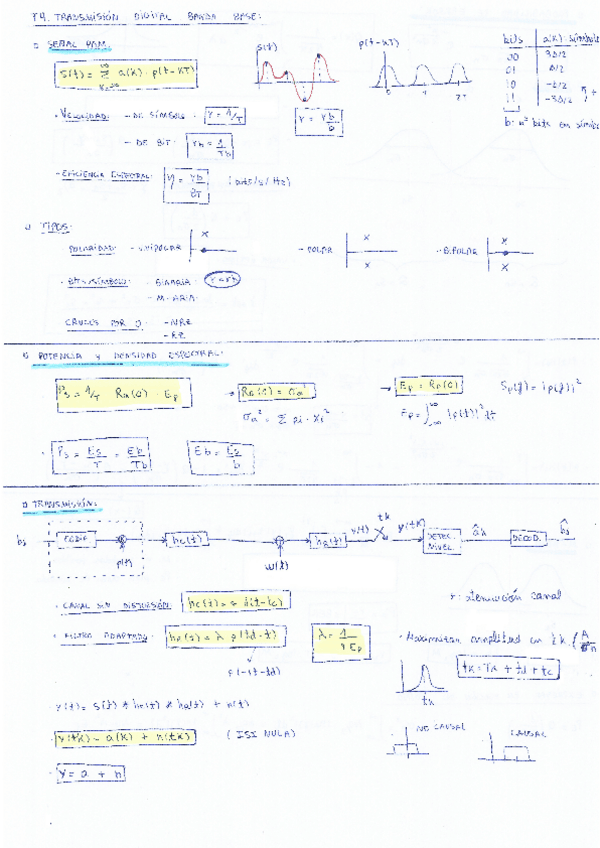 T4. TRANSMISIÓN DIGITAL BANDA BASE:
SEÑAL PAM:
s(t) = Σ a(k) · p(t-kT)
s(t)
p(t-kT)
bits a(k): símbolo
00 3Δ/2
01 Δ/2
10 -Δ/2
11 -3Δ/2
b: nº bits en
- VELOCIDAD: - DE SÍMBOLO: r = 1/T
r = rb/b
- DE BIT: rb = 1/Tb
- EFICIENCIA ESPECTRAL: η = rb/BT (bits/s/Hz)
TIPOS:
- POLARIDAD: - UNIPOLAR - POLAR - BIPOLAR
- BITS/SÍMBOLO: - BINARIA: r = rb
- M-ARIA:
CRUCES POR 0: - NRZ
- RZ
POTENCIA y DENSIDAD ESPECTRAL:
Ps = 1/T Ra(0) · Ep → Ra(0) = σa² → Ep = Rp(0) Sp(f) = |P(f)|²
σa² = Σ pi · xi² Ep = ∫ |p(t)|² dt
Ps = Es/T = Eb/Tb Eb = Es/b
TRANSMISIÓN:
CODIF hc(t) hR(t) y(t) tk y(tk) DETEC. NIVEL âk DECOD.
p(t) w(t)
- CANAL SIN DISTORSIÓN: hc(t) = γ δ(t-tc) γ: atenuación canal
- FILTRO ADAPTADO: hR(t) = λ p(td-t) λ = 1/γEp - Maximizan amplitud en tk
p(-(t-td))
tk = Tk + td + tc
tk
y(t) = s(t) * hc(t) * hR(t) + n(t)
y(tk) = a(k) + n(tk) (ISI NULA)
NO CAUSAL CAUSAL
y = a + n